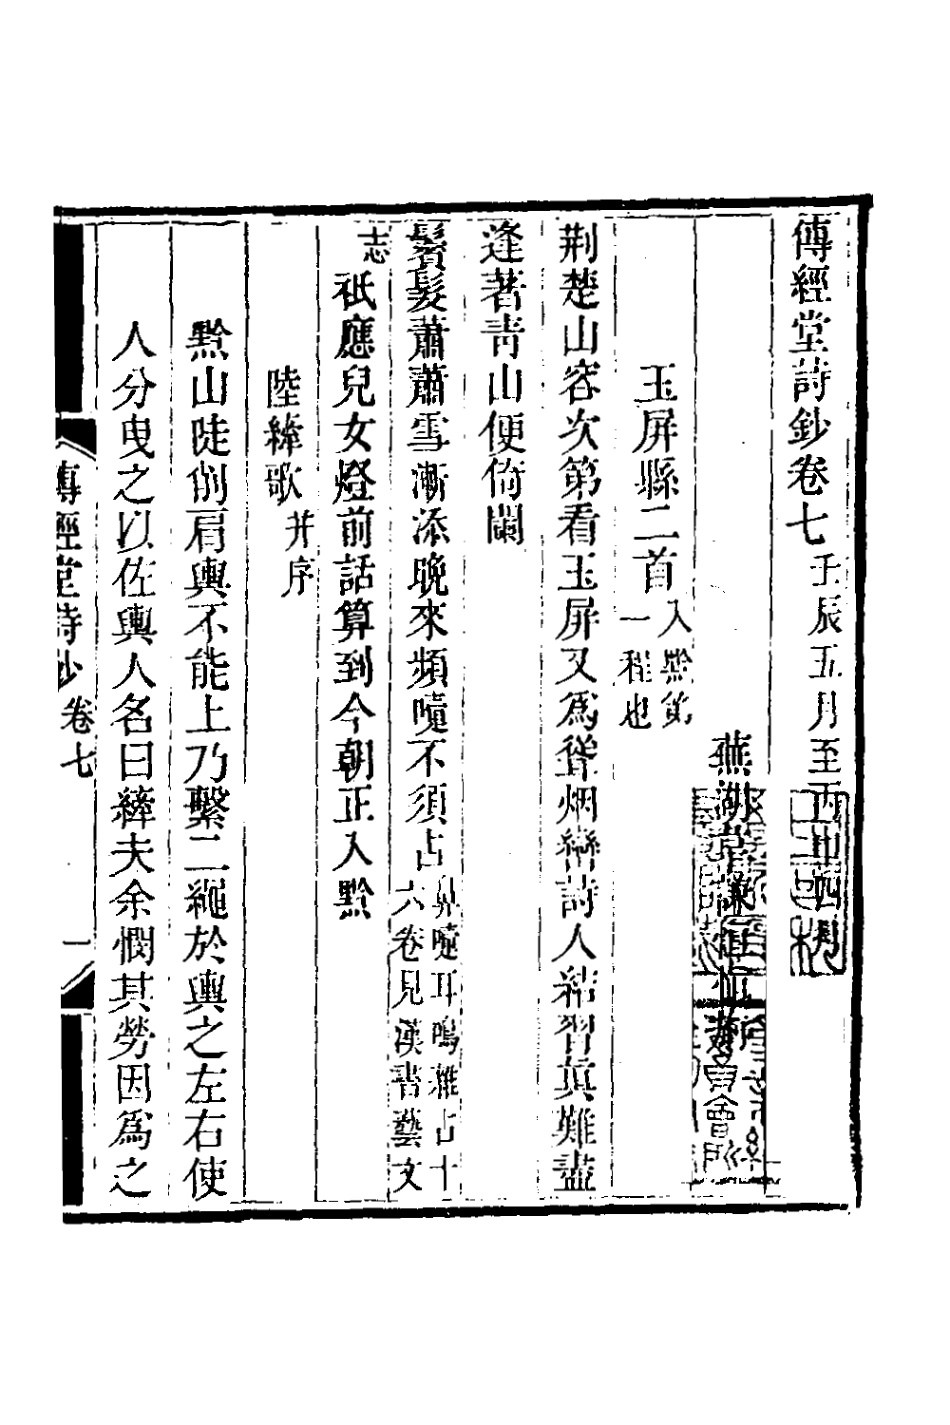 傳經堂詩鈔卷七壬辰五月至丙申四月
蕪湖韋謙恒
玉屏縣二首入黔第一程也
荆楚山容次第看玉屏又爲聳烟巒詩人結習眞難盡
逢著靑山便倚闌
鬢髮蕭蕭雪漸添晚來頻嚏不須占鼻嚏耳鳴雜占十六卷見漢書藝文
志祇應兒女燈前話算到今朝正入黔
陸繂歌并序
黔山陡削肩輿不能上乃繫二繩於輿之左右使
人分曳之以佐輿人名曰繂夫余憫其勞因爲之
傳經堂詩鈔卷七 一